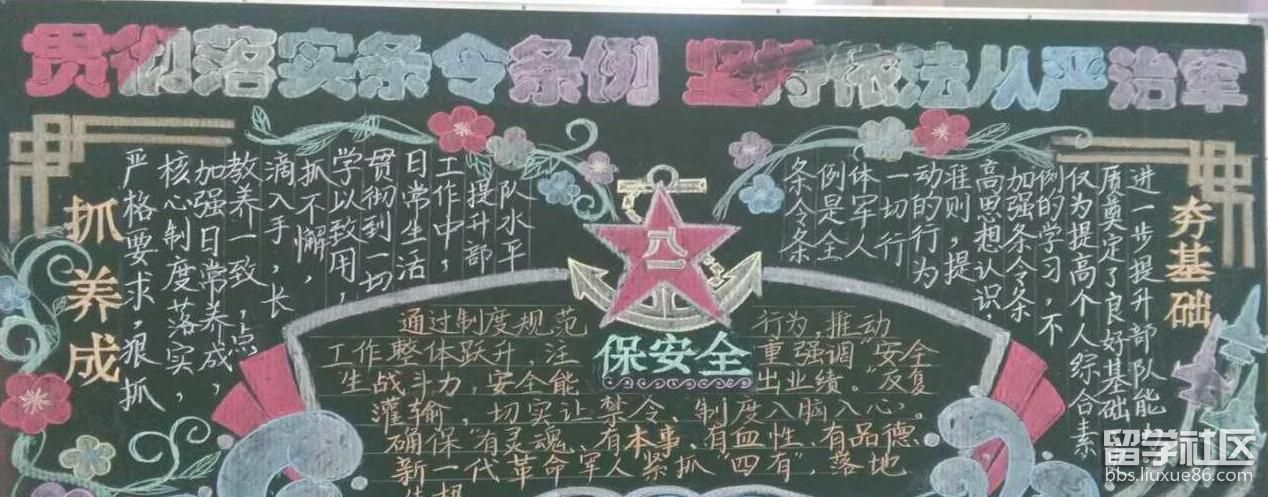 贯彻落实条令条例 坚持依法从严治军
抓养成
严格要求，狠抓
核心制度落实，
加强日常养成，
教养一致，点
滴入手，长
抓不懈，
学以致用，
贯彻到一切
日常生活
工作中，
提升部
队水平
八一
保安全
通过制度规范 行为，推动
工作整体跃升，注 重强调“安全
生战斗力，安全能 出业绩。”反复
灌输，切实让禁令、制度入脑入心。
确保“有灵魂、有本事、有血性、有品德
新一代革命军人紧抓“四有”，落地
条令条
例是全
体军人
一切行
动的行为
准则，提
高思想认识，
加强条令条
例的学习，不
仅为提高个人综合素
质奠定了良好基础
进一步提升部队能
夯基础
留学社区
bbs.liuxue86.com